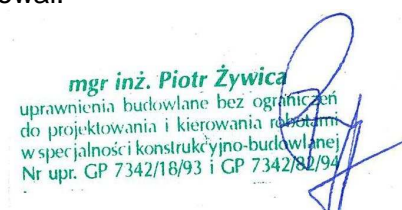 mgr inż. Piotr Żywica
uprawnienia budowlane bez ograniczeń
do projektowania i kierowania robotami
w specjalności konstrukcyjno-budowlanej
Nr upr. GP 7342/18/93 i GP 7342/82/94